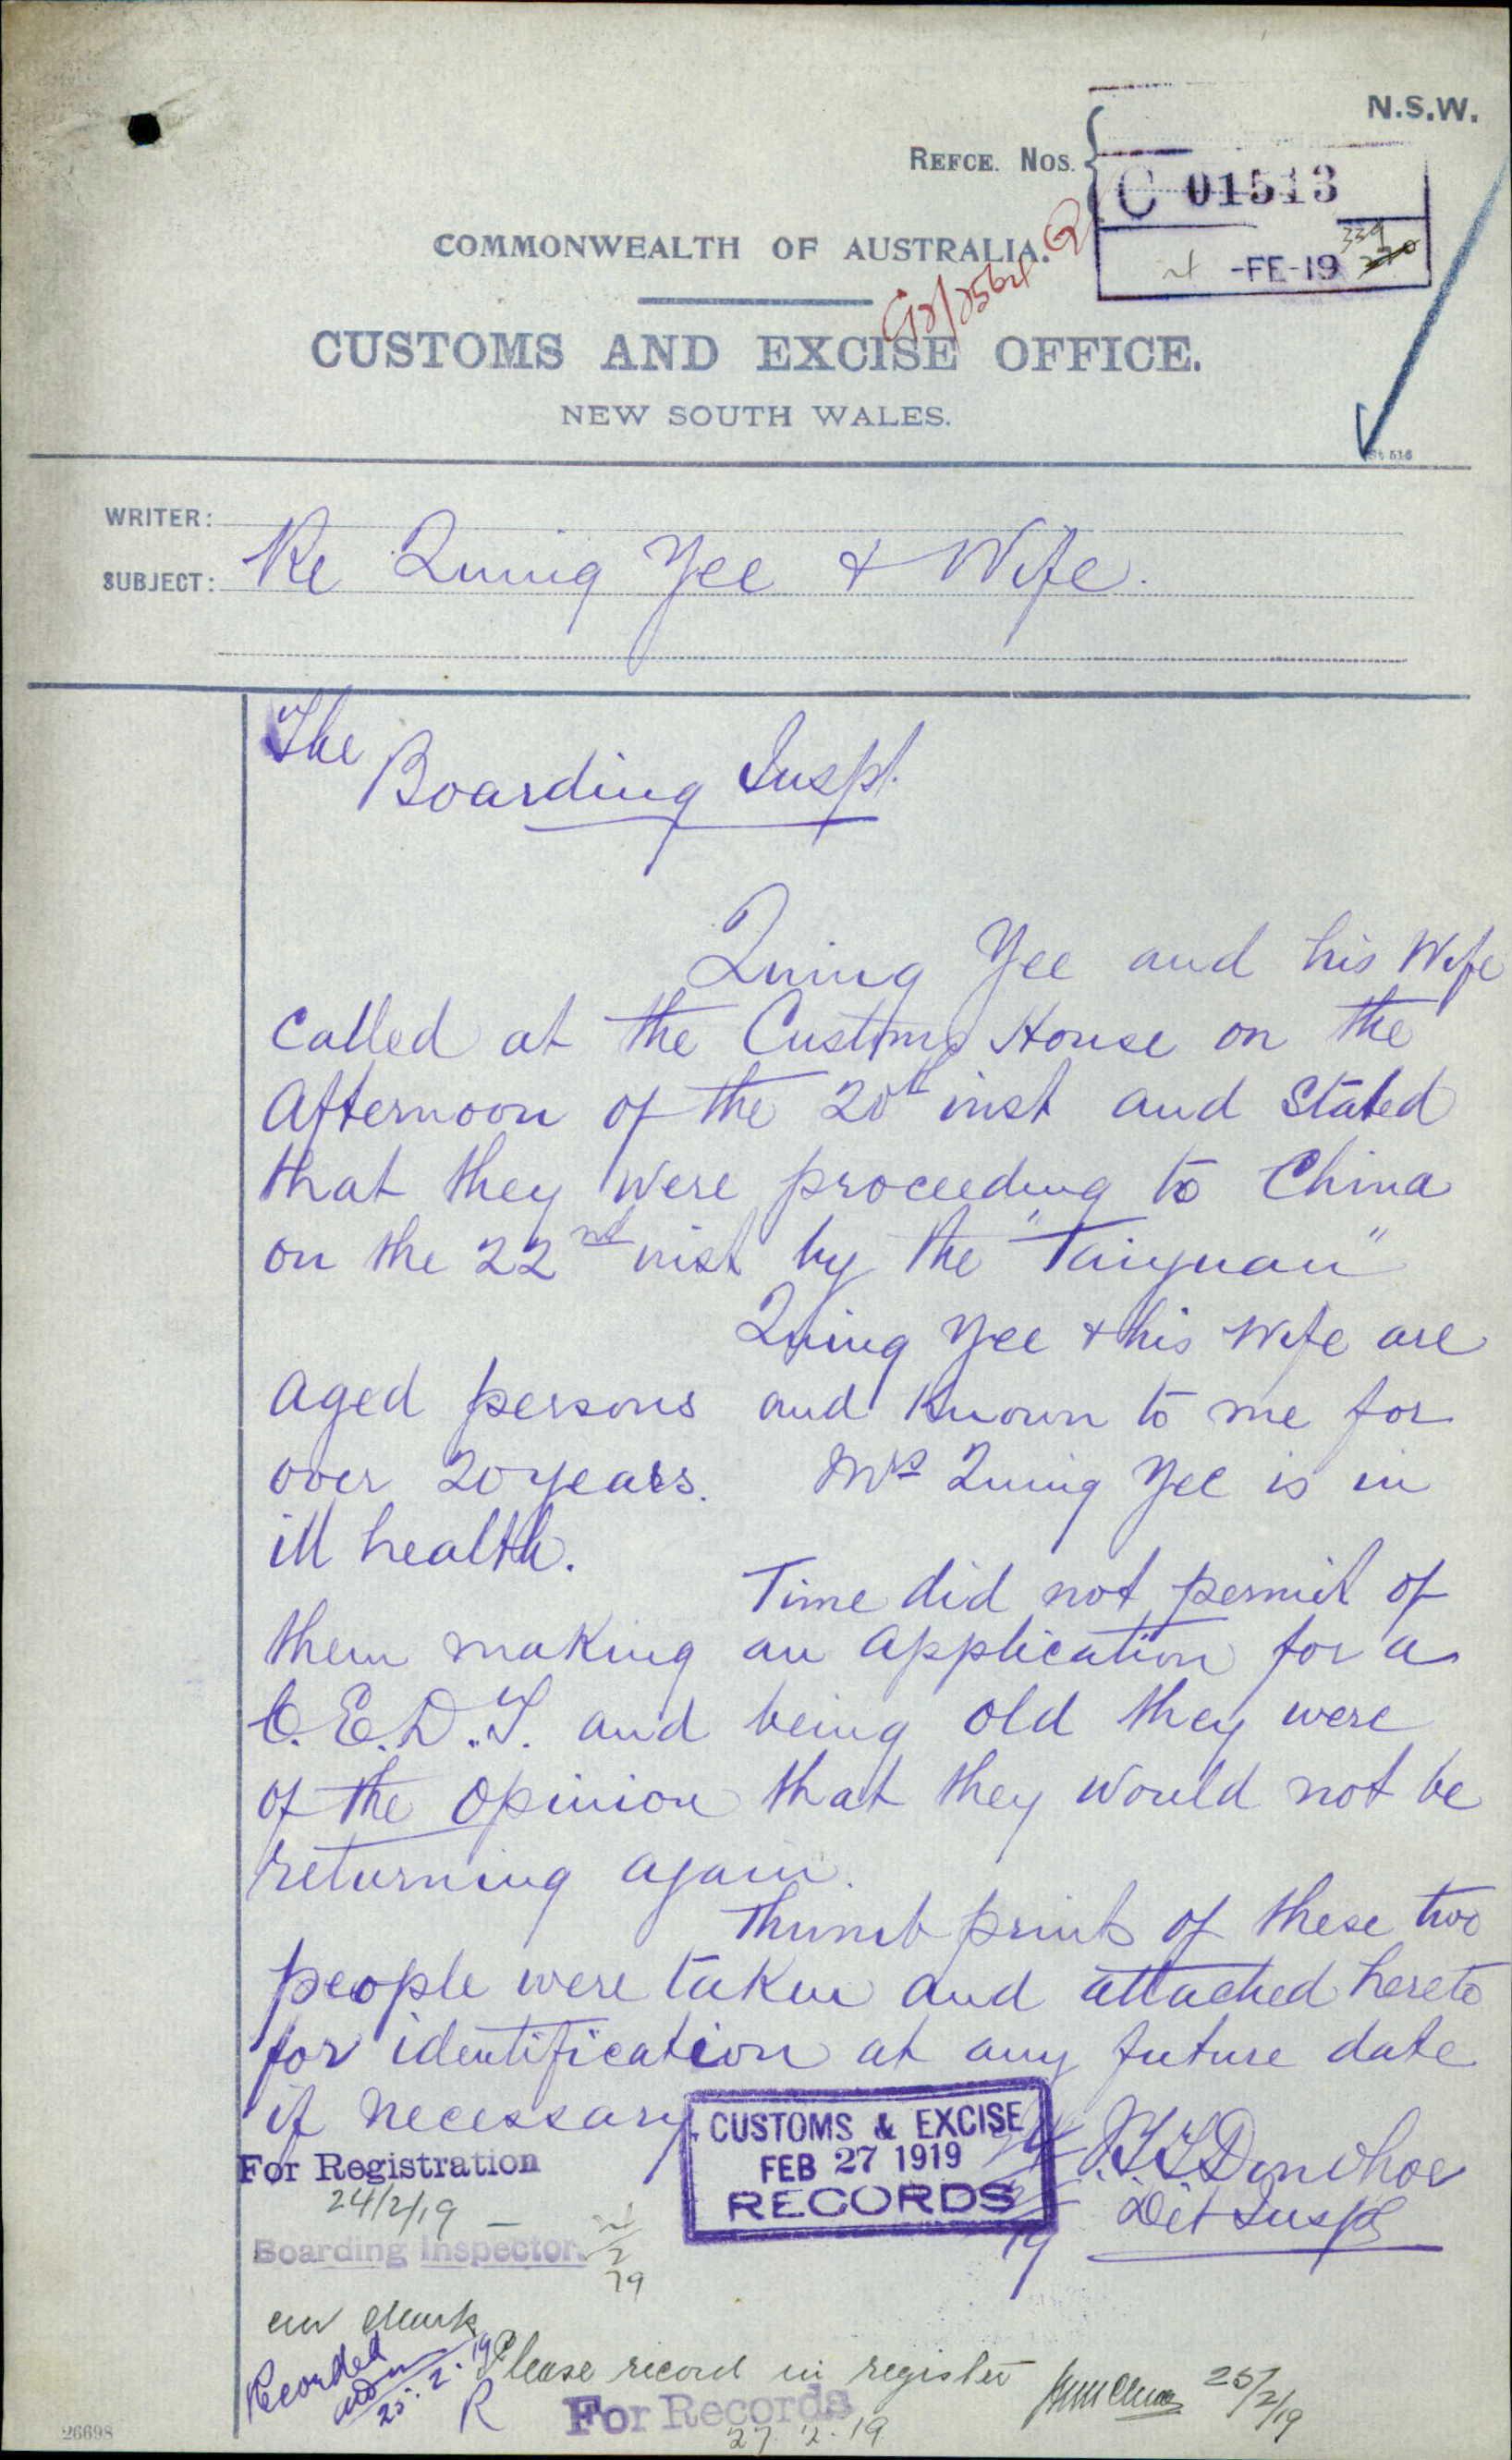 N.S.W.
REFCE. NOS.
C 01513
-FE-19
COMMONWEALTH OF AUSTRALIA.
CUSTOMS AND EXCISE OFFICE.
NEW SOUTH WALES.
St 516
WRITER:
SUBJECT: Re Quing Yee & Wife.
The
Boarding Inspr.
Quing Yee and his Wife
called at the Customs House on the
Afternoon of the 20th inst and Stated
that they were proceeding to China
on the 22nd inst by the "Taiyuan"
Quing Yee & his Wife are
aged persons and known to me for
over 20 years. Mrs Quing Yee is in
ill health.
Time did not permit of
them making an application for a
C.E.D.T. and being old they were
of the opinion that they would not be
returning again.
Thumb prints of these two
people were taken and attached hereto
for identification at any future date
if necessary.
CUSTOMS & EXCISE
FEB 27 1919
RECORDS
Donohoe
Det Inspr
For Registration
24/2/19
Boarding Inspector.
Recorded
25.2.19
Please record in register
25/2/19
R
For Records
27.2.19
26698